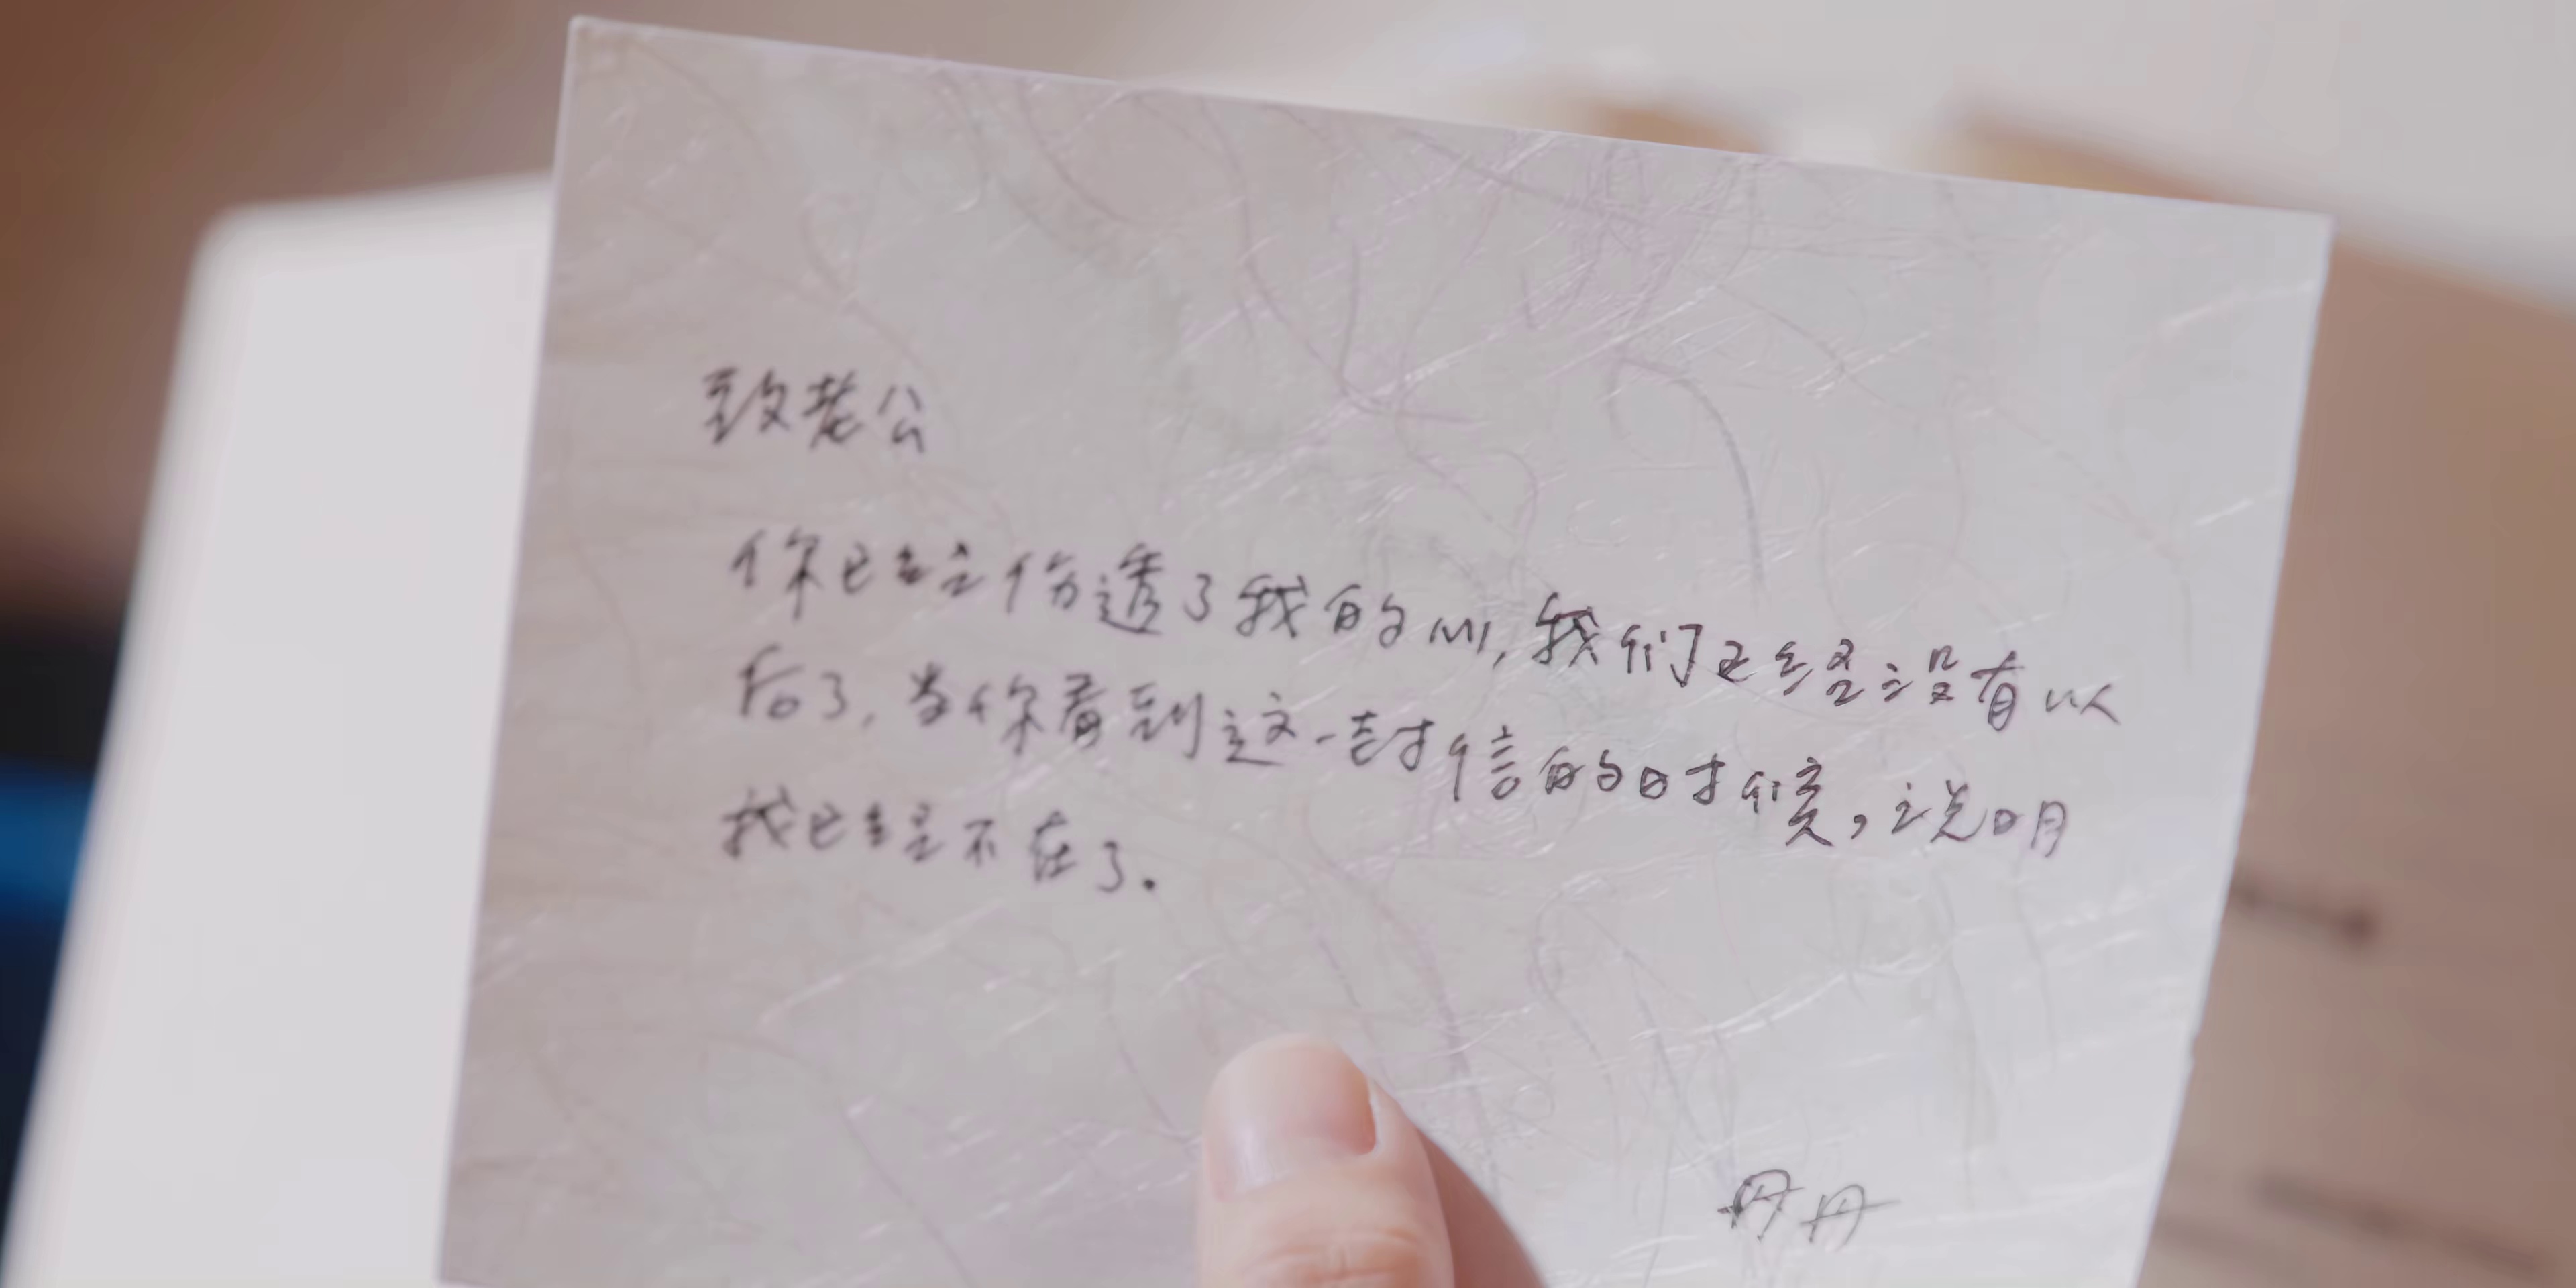 致老公
你已经伤透了我的心,我们已经没有以
后了,当你看到这一封信的时候,说明
我已经不在了.
丹丹